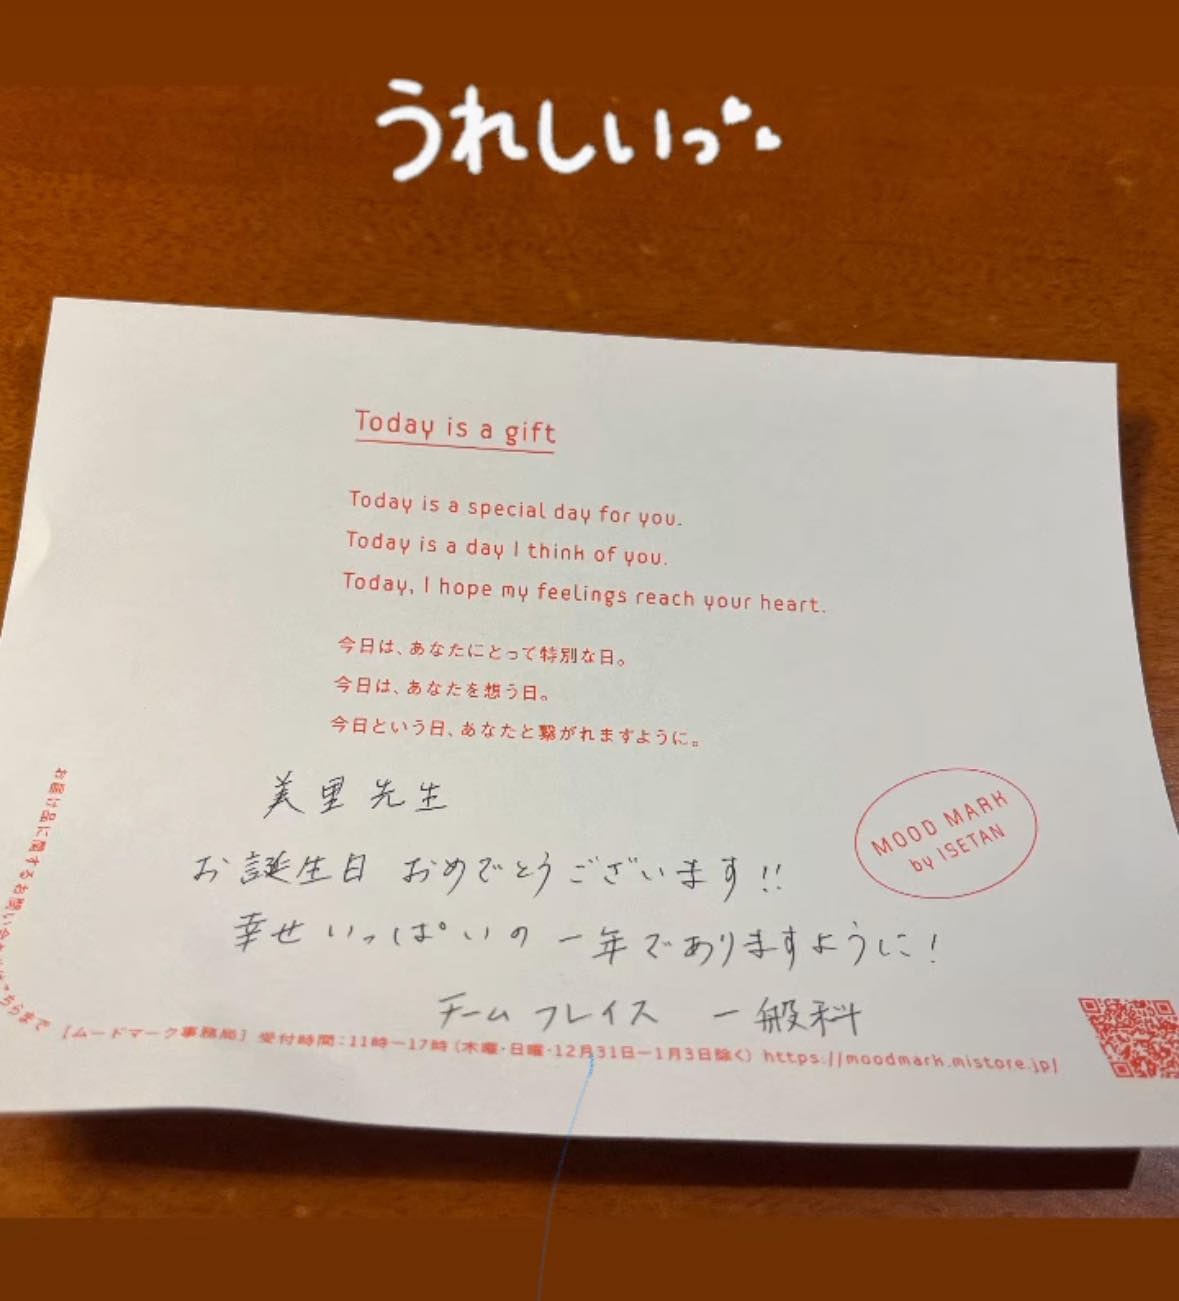 うれしいっ
Today is a gift
Today is a special day for you.
Today is a day I think of you.
Today, I hope my feelings reach your heart.
今日は、あなたにとって特別な日。
今日は、あなたを想う日。
今日という日、あなたと繋がれますように。
美里先生
お誕生日 おめでとうございます!!
幸せいっぱいの 一年でありますように!
チームフレイス 一般科
MOOD MARK
by ISETAN
お届け品に関するお問い合わせはこちらまで
[ムードマーク事務局] 受付時間:11時ー17時(木曜・日曜・12月31日ー1月3日除く) https://moodmark.mistore.jp/